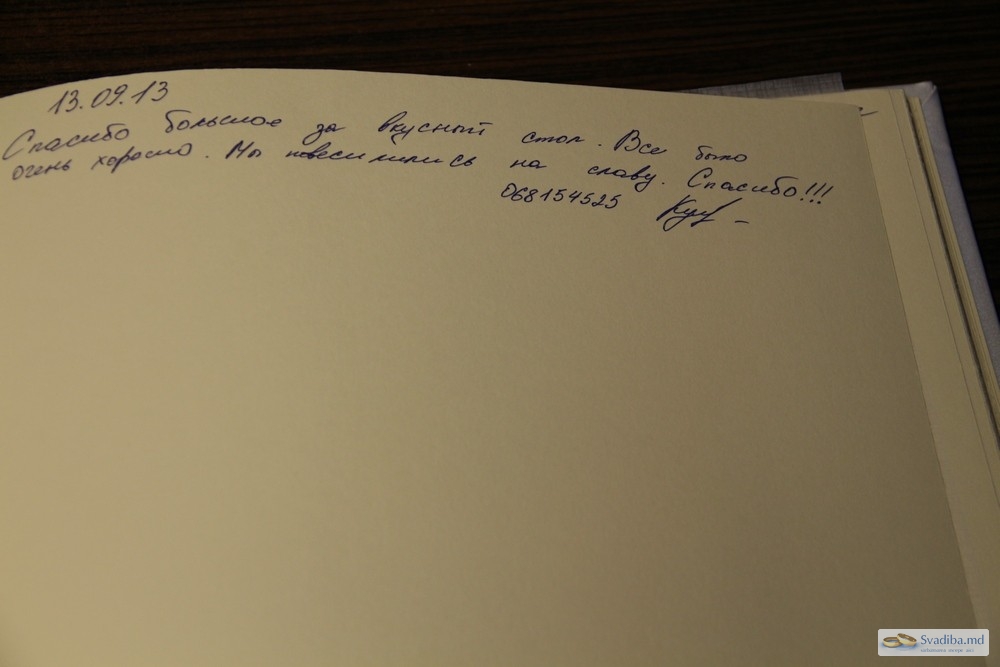 13.09.13
Спасибо большое за вкусный стол. Все было
очень хорошо. Мы повеселились на славу. Спасибо!!!
068154525
Svadiba.md